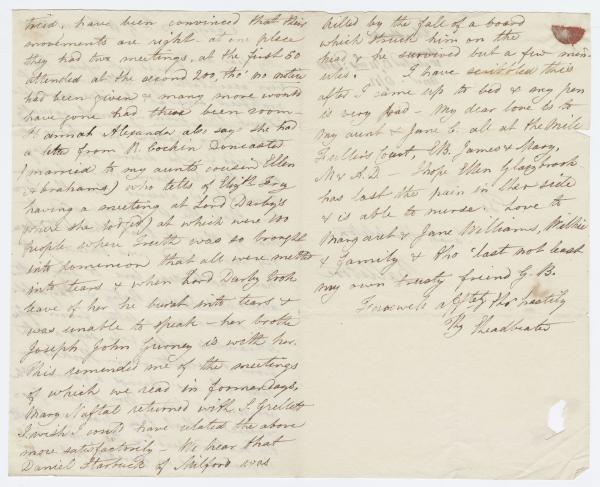 tried, have been convinced that their
movements are right - at one place
they had two meetings, at the first 50
attended at the second 200, tho' no notice
had been given & many more would
have gone had there been room -
Hannah Alexander also says she had
a letter from R. Cockin Doncaster
(married to my aunt's cousin Ellen
Abrahams) who tells of Eliz:th Fry
having a meeting at Lord Darby's
(where she lodged) at which were 100
people where Truth was so brought
into dominion that all were melted
into tears & when Lord Darby took
leave of her he burst into tears &
was unable to speak - her brother
Joseph John Gurney is with her.
This reminded me of the meetings
of which we read in former days,
Mary Naftal returned with S. Grellett
I wish I could have related the above
more satisfactorily - We hear that
Daniel Starbuck of Milford was
killed by the fall of a board
which struck him on the
head & he survived but a few min
utes. I have scribbled this
after I came up to bed & my pen
is very bad - My dear love is to
my aunt & Jane C. all at the Mill
Fuller's Court, EB. James & Mary,
M & A.D - I hope Ellen Glazebrook
has lost the pain in her side
& is able to nurse. Love to
Margaret & Jane Williams, Willie
& family & tho' last not least
my own trusty friend G.B.
Farewell affety tho' hastily
Thy SLeadbeater